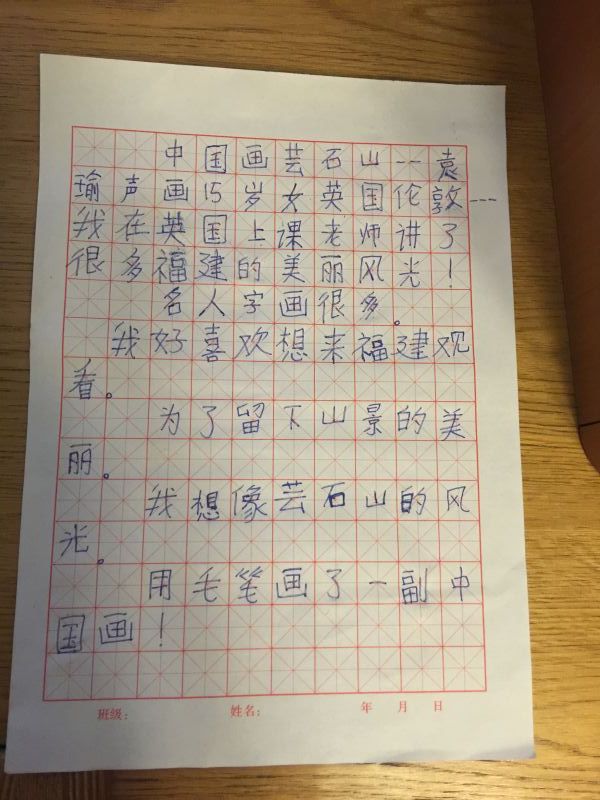 中国画芸石山--袁
瑜声画15岁女英国伦敦---
我在英国上课老师讲了
很多福建的美丽风光！
名人字画很多。
我好喜欢想来福建观
看。
为了留下山景的美
丽。
我想像芸石山的风
光。
用毛笔画了一副中
国画！
班级： 姓名： 年 月 日